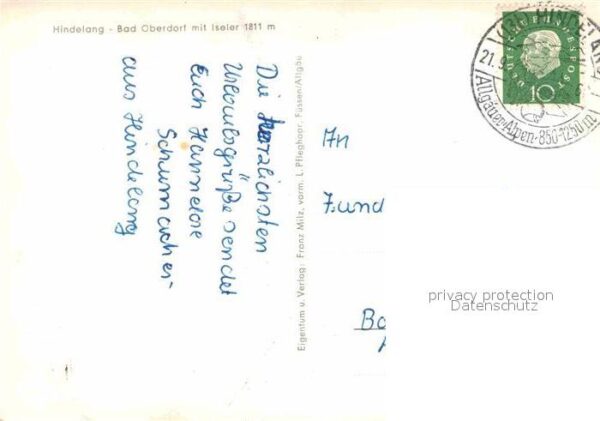 Hindelang - Bad Oberdorf mit Iseler 1811 m
Die herzlichsten
Urlaubsgrüße sendet
Euch Hannelore
Schumacher
aus Hindelang
Eigentum u. Verlag: Franz Milz, vorm. L. Pfleghaar, Füssen/Allgäu
An
Ba
HINDELANG
21.9
Allgäuer-Alpen-850-1250 m
DEUTSCHE BUNDESPOST
10
privacy protection
Datenschutz